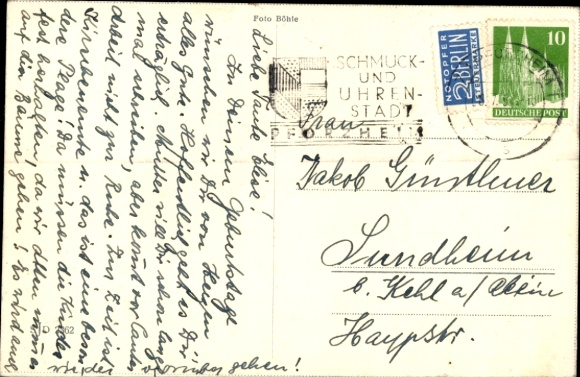 Foto Böhle
Liebe Tante Liese!
Zu Deinem Geburtstage
wünschen wir Dir von Herzen
alles Gute. Hoffentlich geht es Dir
erträglich. Mutter will Dir schon lange
mal schreiben, aber kommt vor lauter
Arbeit nicht zur Ruhe. Zur Zeit ist
Kirschenernte u. das ist eine besondere
Plage! Da müssen die Kinder
fest herhalten, da wir Alten nimmer
auf die Bäume gehen! Es wird auch
wieder vorüber gehen!
D 62
SCHMUCK-
UND
UHREN-
STADT
PFORZHEIM
NOTOPFER
2 BERLIN
STEUERMARKE
PFORZHEIM
10
DEUTSCHE POST
Frau
Jakob Günthner
Sundheim
b. Kehl a/Rhein
Hauptstr.